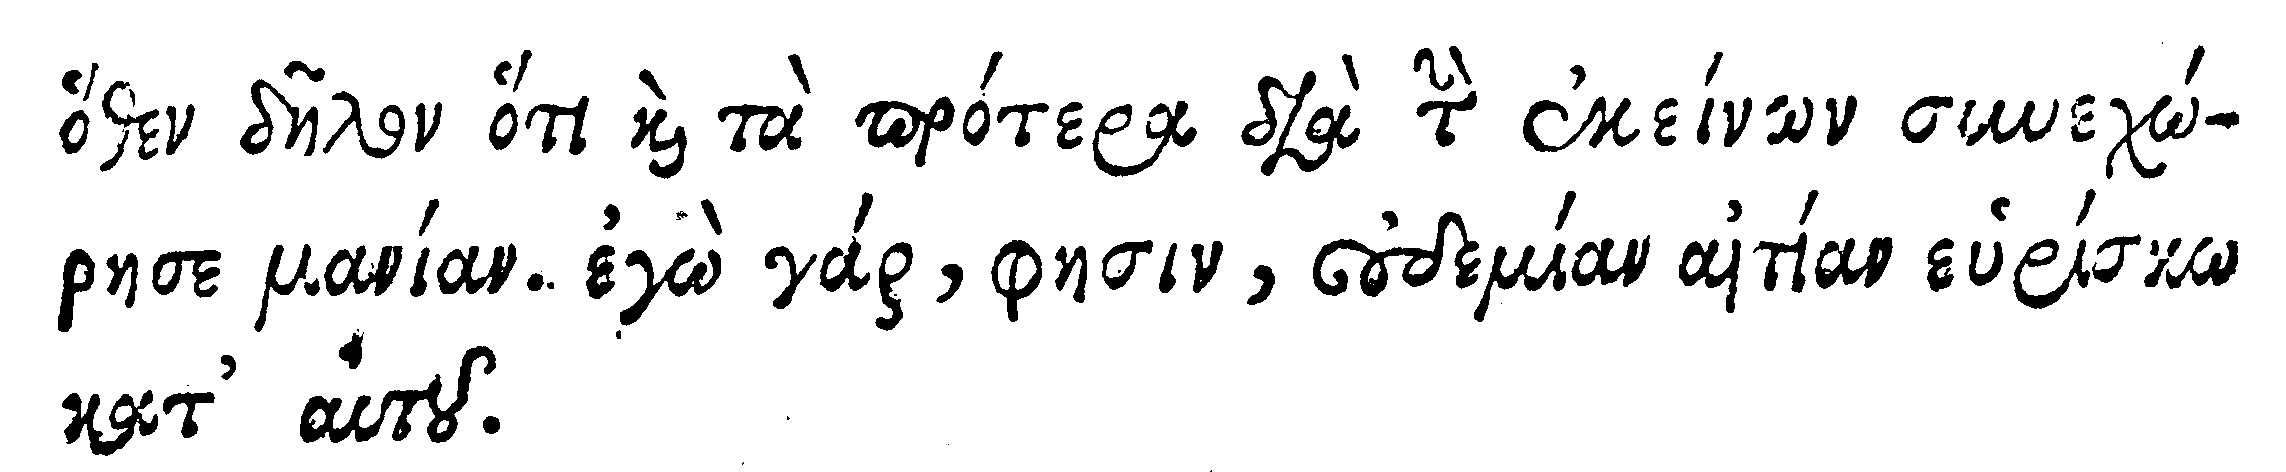 ὅθεν δῆλον ὅτι καὶ τὰ πρότερα διὰ τὴν ἐκείνων συνεχώ-
ρησε μανίαν. ἐγὼ γάρ, φησιν, οὐδεμίαν αἰτίαν εὑρίσκω
κατ' αὐτοῦ.